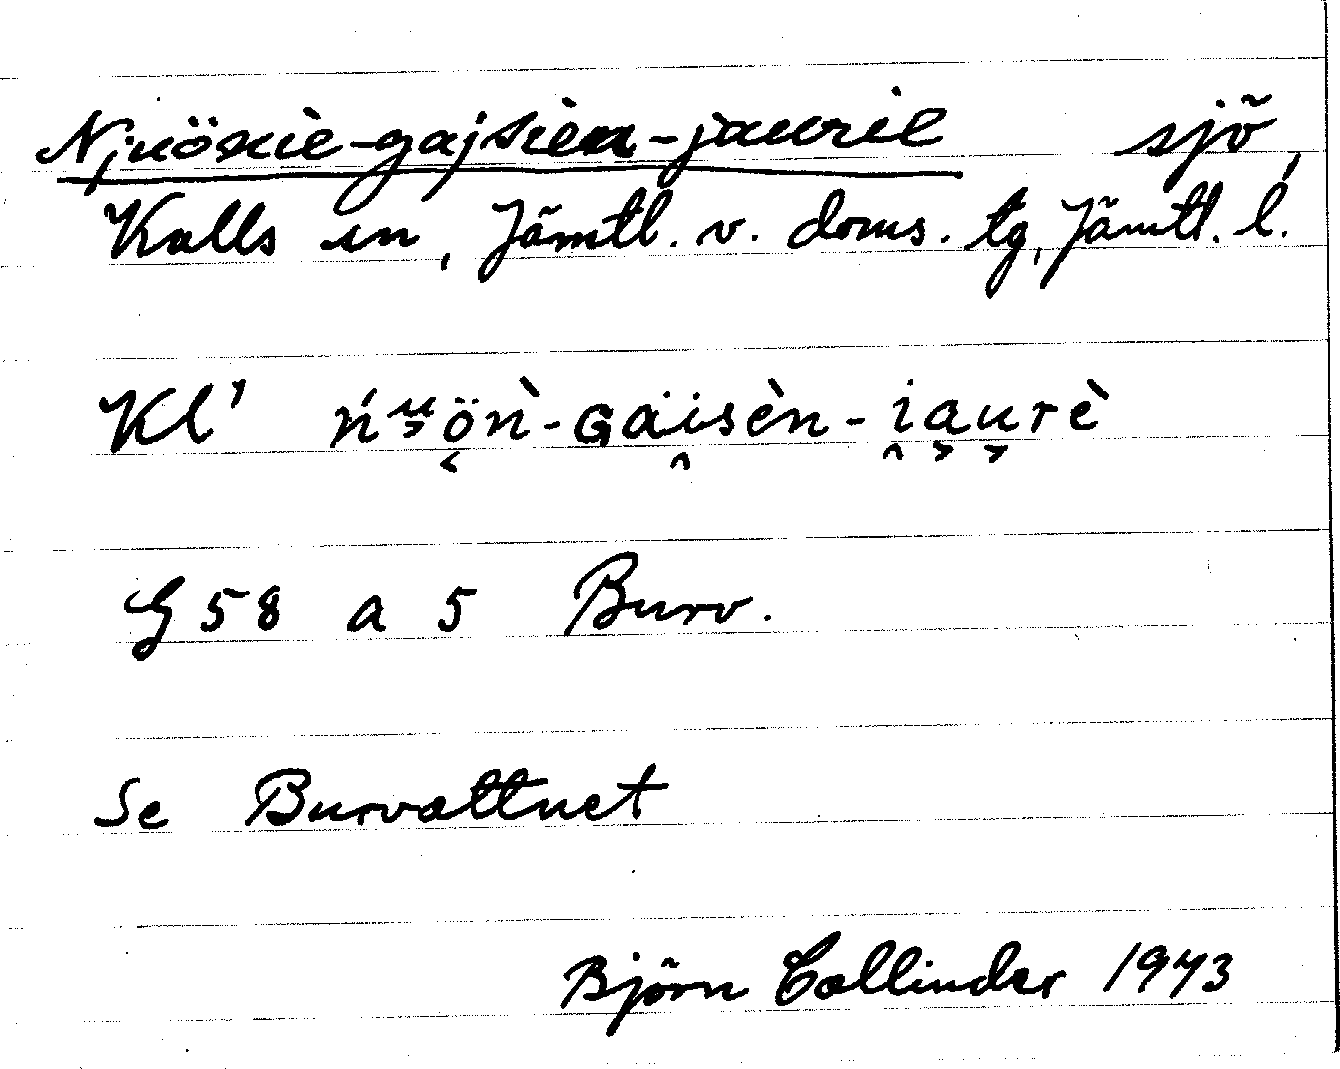 Njuönie-gajsien-jaurie sjö,
Kalls sn, Jämtl. v. doms. tg, Jämtl. l.
Kl' ńᵘ̯ö̭ǹ-Gäi̯sèn-i̯a̭u̯rè
G 58 a 5 Burv.
Se Burvattnet
Björn Collinder 1943